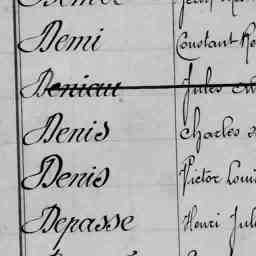 Demi Constant
Deniau Jules
Denis Charles
Denis Victor Louis
Depasse Henri Jul